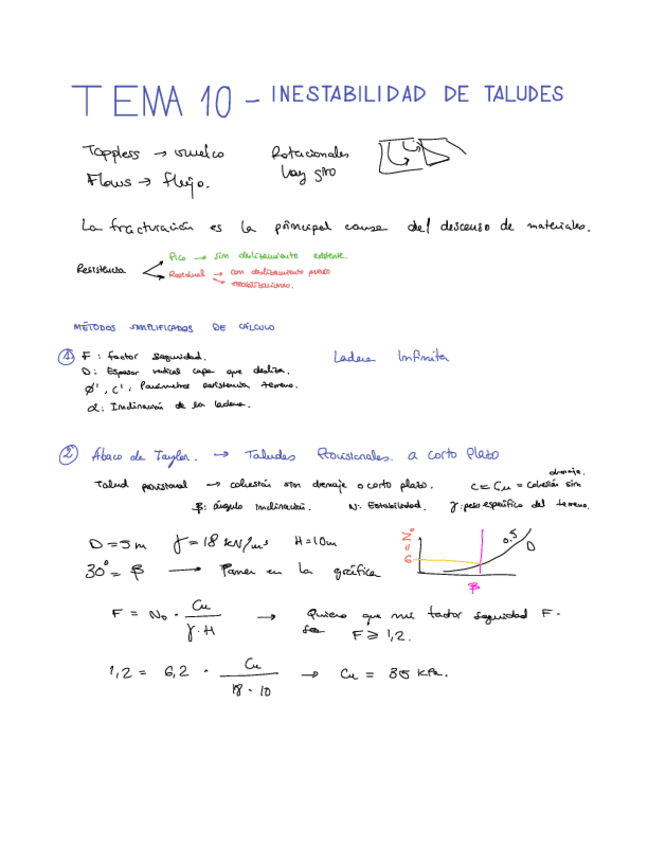 TEMA 10 - INESTABILIDAD DE TALUDES
Toppless → vuelco
Rotacionales
Flows → flujo.
hay giro
La fracturación es la principal causa del descenso de materiales.
Pico → sin deslizamiento existente.
Resistencia
Residual → con deslizamiento previo
→ estabilizaciones.
MÉTODOS SIMPLIFICADOS DE CÁLCULO
① F: factor seguridad.
Ladera Infinita
D: Espesor vertical capa que desliza.
Ø', c', Parámetros resistencia terreno.
α: Inclinación de la ladera.
② Ábaco de Taylor. → Taludes Provisionales. a corto Plazo
Talud provisional → cohesión sin drenaje o corto plazo. c = Cu = cohesión sin drenaje.
β: ángulo inclinación. N: Estabilidad. γ: peso específico del terreno.
D = 5m γ = 18 kN/m³ H = 10m
30° = β → Poner en la gráfica
N°
6
0.5
D
β
F = No · Cu / γ·H → Quiero que mi factor seguridad F
sea F ≥ 1,2.
1,2 = 6,2 · Cu / 18·10 → Cu = 35 kPa.